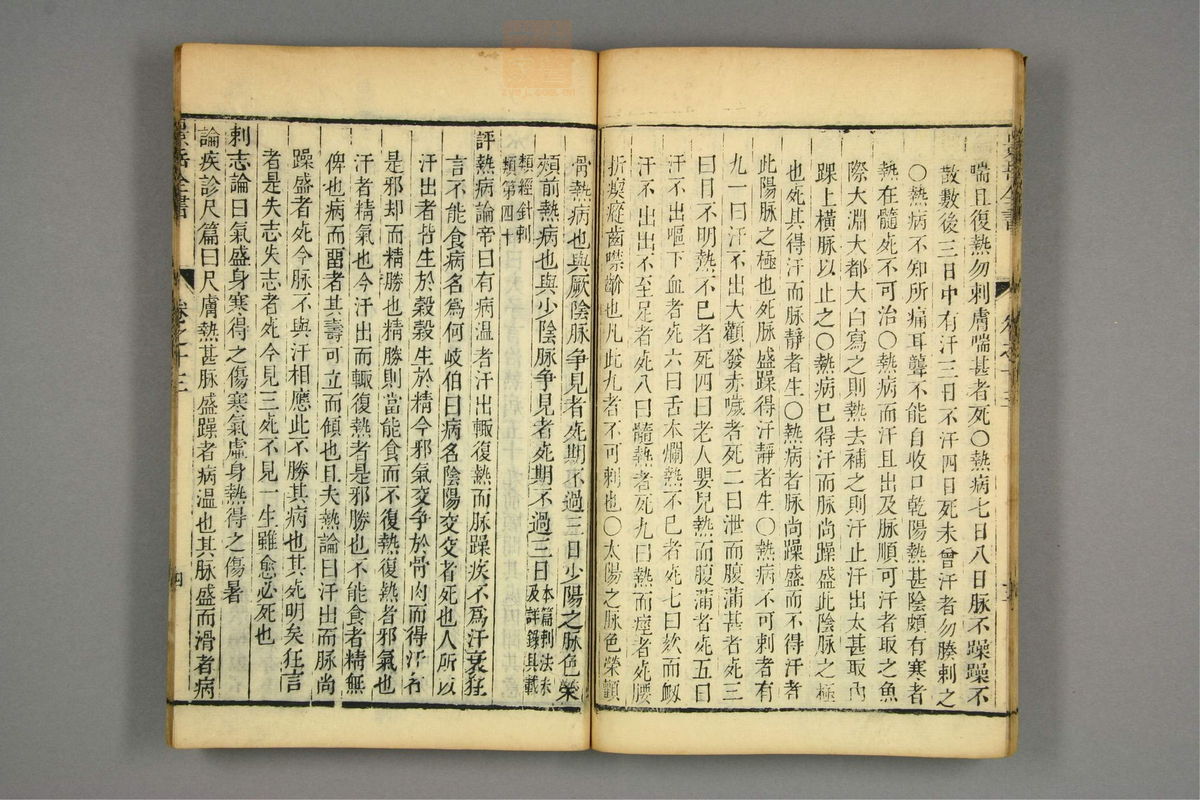 喘且復熱勿刺膚喘甚者死○熱病七日八日脉不躁躁不
散數後三日中有汗三日不汗四日死未曾汗者勿勝刺之
○熱病不知所痛耳聾不能自收口乾陽熱甚陰頗有寒者
熱在髓死不可治○熱病而汗且出及脉順可汗者取之魚
際大淵大都大白寫之則熱去補之則汗止汗出太甚取內
踝上橫脉以止之○熱病已得汗而脉尚躁盛此陰脉之極
也死其得汗而脉靜者生○熱病者脉尚躁盛而不得汗者
此陽脉之極也死脉盛躁得汗靜者生○熱病不可刺者有
九一曰汗不出大顴發赤噦者死二曰泄而腹滿甚者死三
曰目不明熱不已者死四曰老人嬰兒熱而腹滿者死五曰
汗不出嘔下血者死六曰舌本爛熱不已者死七曰欬而衂
汗不出出不至足者死八曰髓熱者死九曰熱而痙者死腰
折瘈瘲齒噤齘也凡此九者不可刺也○太陽之脉色榮顴
骨熱病也與厥陰脉爭見者死期不過三日少陽之脉色榮
頰前熱病也與少陰脉爭見者死期不過三日本篇刺法未及詳錄具載
類經針刺類第四十
評熱病論帝曰有病温者汗出輒復熱而脉躁疾不爲汗衰狂
言不能食病名爲何岐伯曰病名陰陽交交者死也人所以
汗出者皆生於穀穀生於精今邪氣交爭於骨肉而得汗者
是邪却而精勝也精勝則當能食而不復熱復熱者邪氣也
汗者精氣也今汗出而輒復熱者是邪勝也不能食者精無
俾也病而畱者其壽可立而傾也且夫熱論曰汗出而脉尚
躁盛者死今脉不與汗相應此不勝其病也其死明矣狂言
者是失志失志者死今見三死不見一生雖愈必死也
刺志論曰氣盛身寒得之傷寒氣虛身熱得之傷暑
論疾診尺篇曰尺膚熱甚脉盛躁者病温也其脉盛而滑者病
景岳全書
卷之十三
四